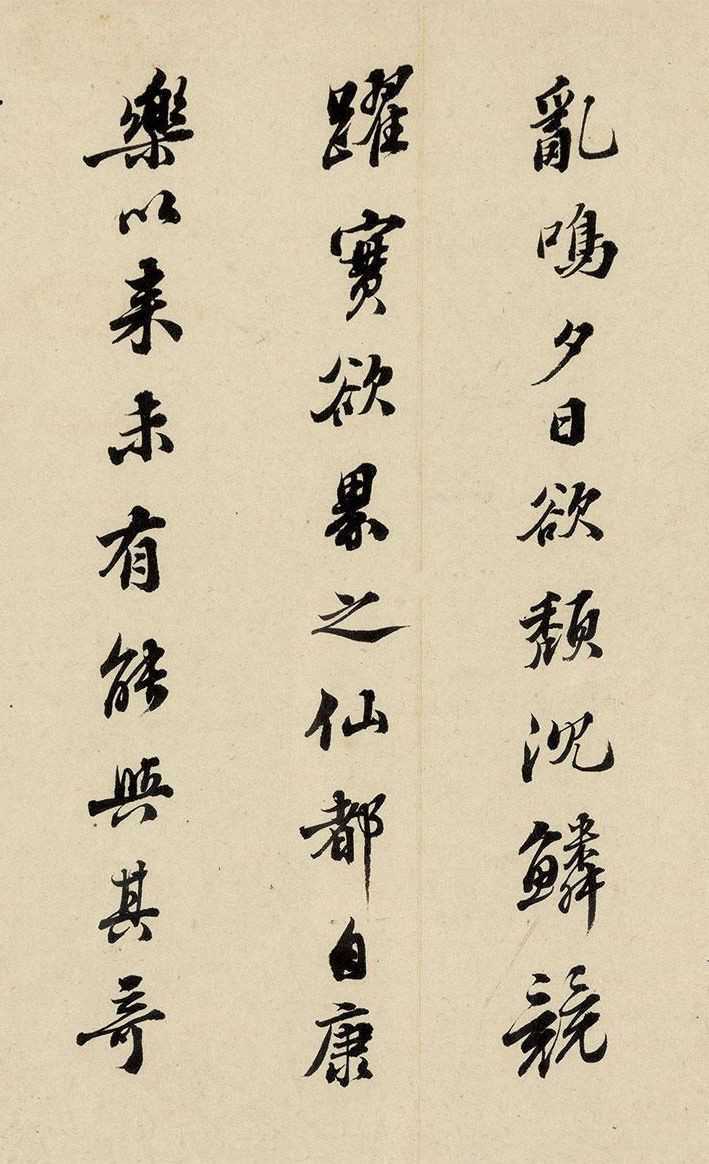 亂鳴夕日欲頽沉鱗競
躍實欲界之仙都自康
樂以来未有能與其奇